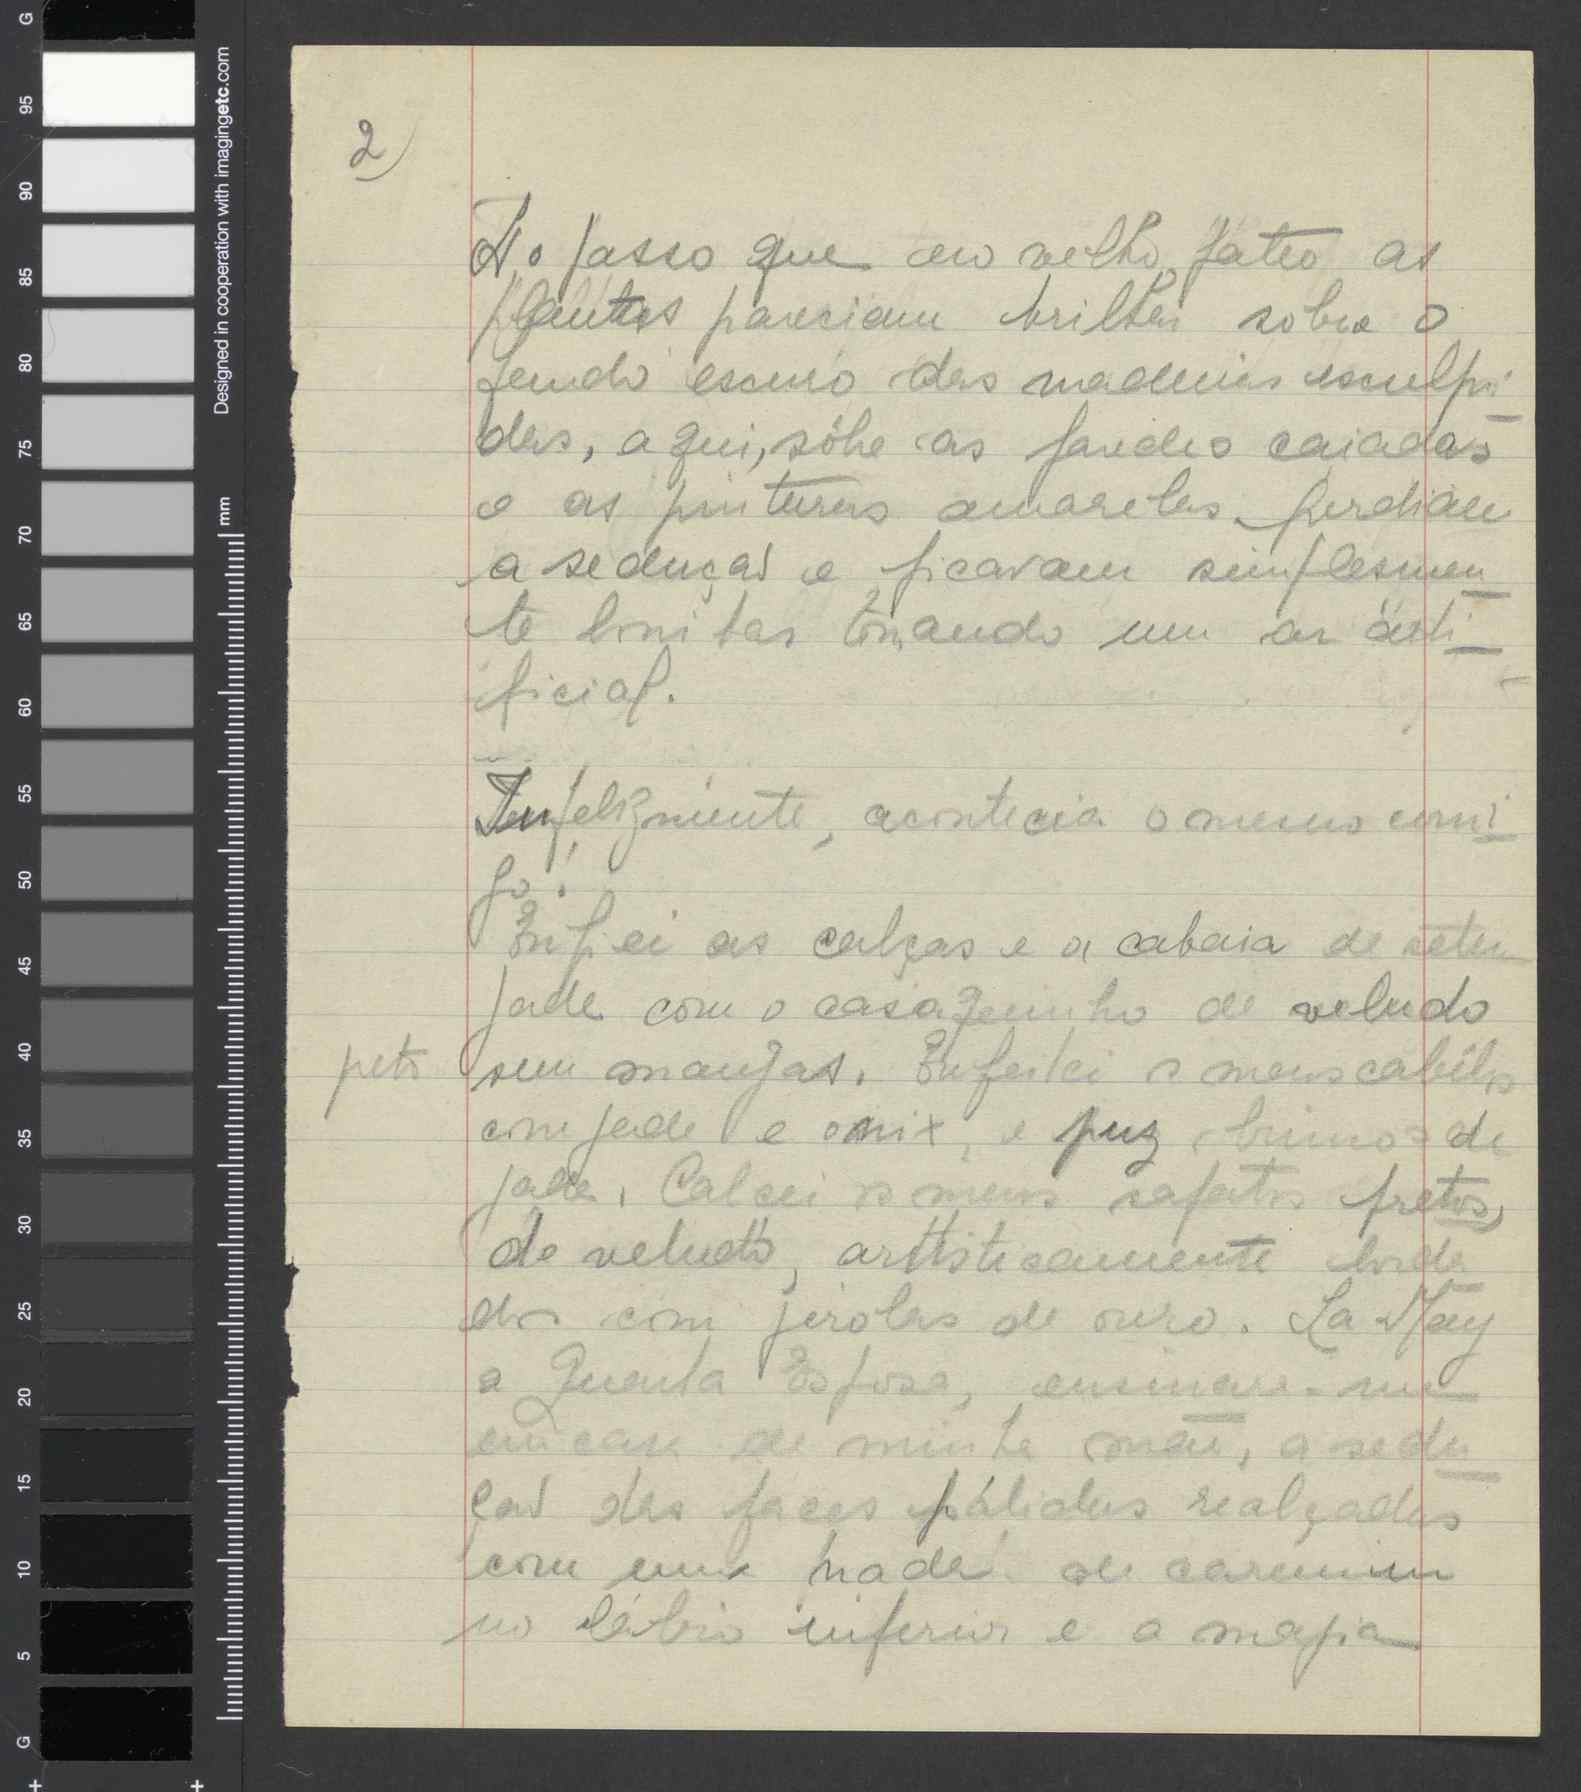 2)
Ao passo que ao velho páteo as
plantas pareciam brilhar sobre o
fundo escuro das madeiras esculpi
das, aqui, sôbre as paredes caiadas
e as pinturas amarelas, perdiam
a sedução e ficavam simplesmen
te bonitas tomando um ar arti
ficial.
Infelizmente, acontecia o mesmo comi
go!
Enfiei as calças e a cabaia de setim
jade com o casaquinho de veludo
preto
sem mangas. Enfeitei os meus cabêlos
com jade e onix, e puz brincos de
jade. Calcei os meus sapatos pretos,
de veludo, artisticamente borda
dos com pérolas de ouro. La-May
a Quarta Esposa, ensinara-me
em casa de minha mãe, a sedu
ção das faces pálidas realçadas
com um nada de carmim
no lábio inferior e a magia
G
95
90
85
80
75
70
65
60
55
50
45
40
35
30
25
20
15
10
5
G
mm
Designed in cooperation with imagingetc.com